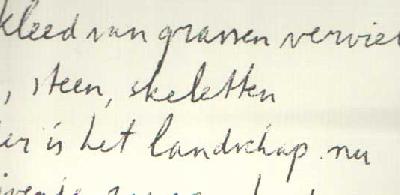 kleed van grassen vervie
, steen, skeletten
er is het landschap nu